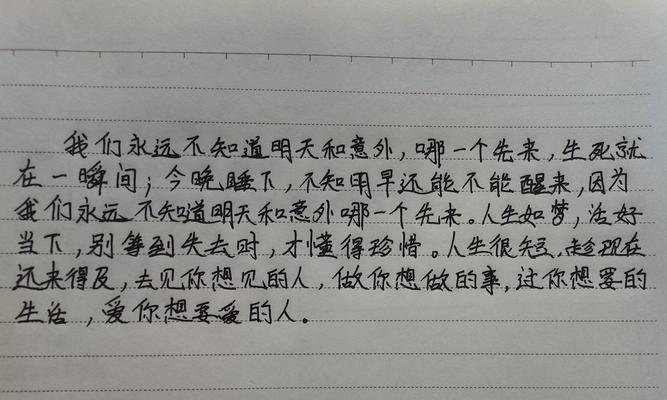 我们永远不知道明天和意外，哪一个先来，生死就
在一瞬间；今晚睡下，不知明早还能不能醒来，因为
我们永远不知道明天和意外哪一个先来。人生如梦，活好
当下，别等到失去时，才懂得珍惜。人生很短，趁现在
还来得及，去见你想见的人，做你想做的事，过你想要的
生活，爱你想要爱的人。